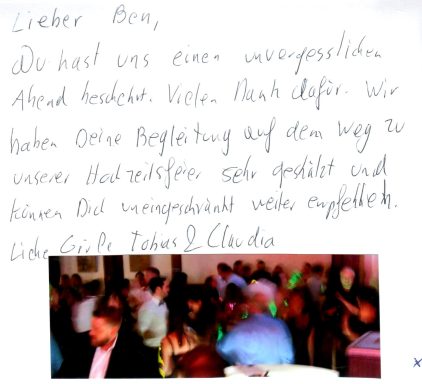 Lieber Ben,
Du hast uns einen unvergesslichen
Abend beschehrt. Vielen Dank dafür. Wir
haben Deine Begleitung auf dem Weg zu
unserer Hochzeitsfeier sehr geschätzt und
können Dich uneingeschränkt weiter empfehlen.
Liebe Grüße Tobias & Claudia
x